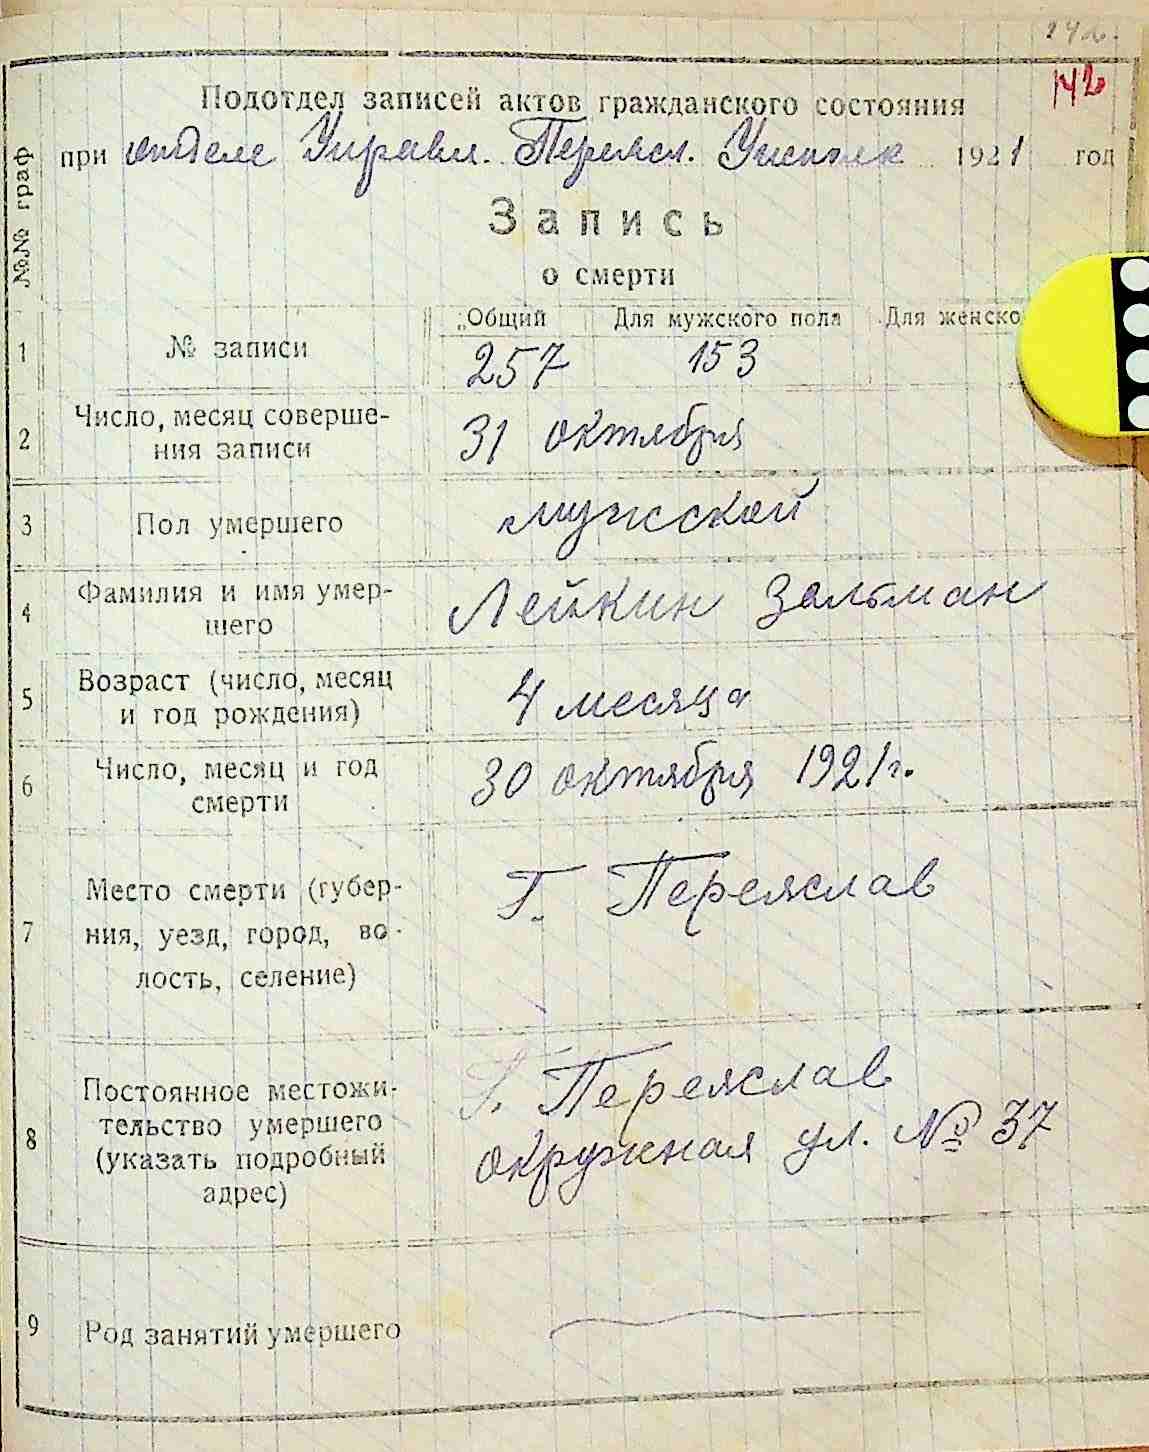 142.
142
Подотдел записей актов гражданского состояния
при отделе Управл. Переясл. Уисполк 1921 год
№№ граф
Запись
о смерти
Общий Для мужского пола Для женско
1 № записи 257 153
2 Число, месяц соверше-
ния записи 31 октября
3 Пол умершего мужской
4 Фамилия и имя умер-
шего Лейкин Зальман
5 Возраст (число, месяц
и год рождения) 4 месяца
6 Число, месяц и год
смерти 30 октября 1921 г.
Место смерти (губер- Г. Переяслав
7 ния, уезд, город, во-
лость, селение)
Постоянное местожи- Г. Переяслав
8 тельство умершего окружная ул. № 37
(указать подробный
адрес)
9 Род занятий умершего